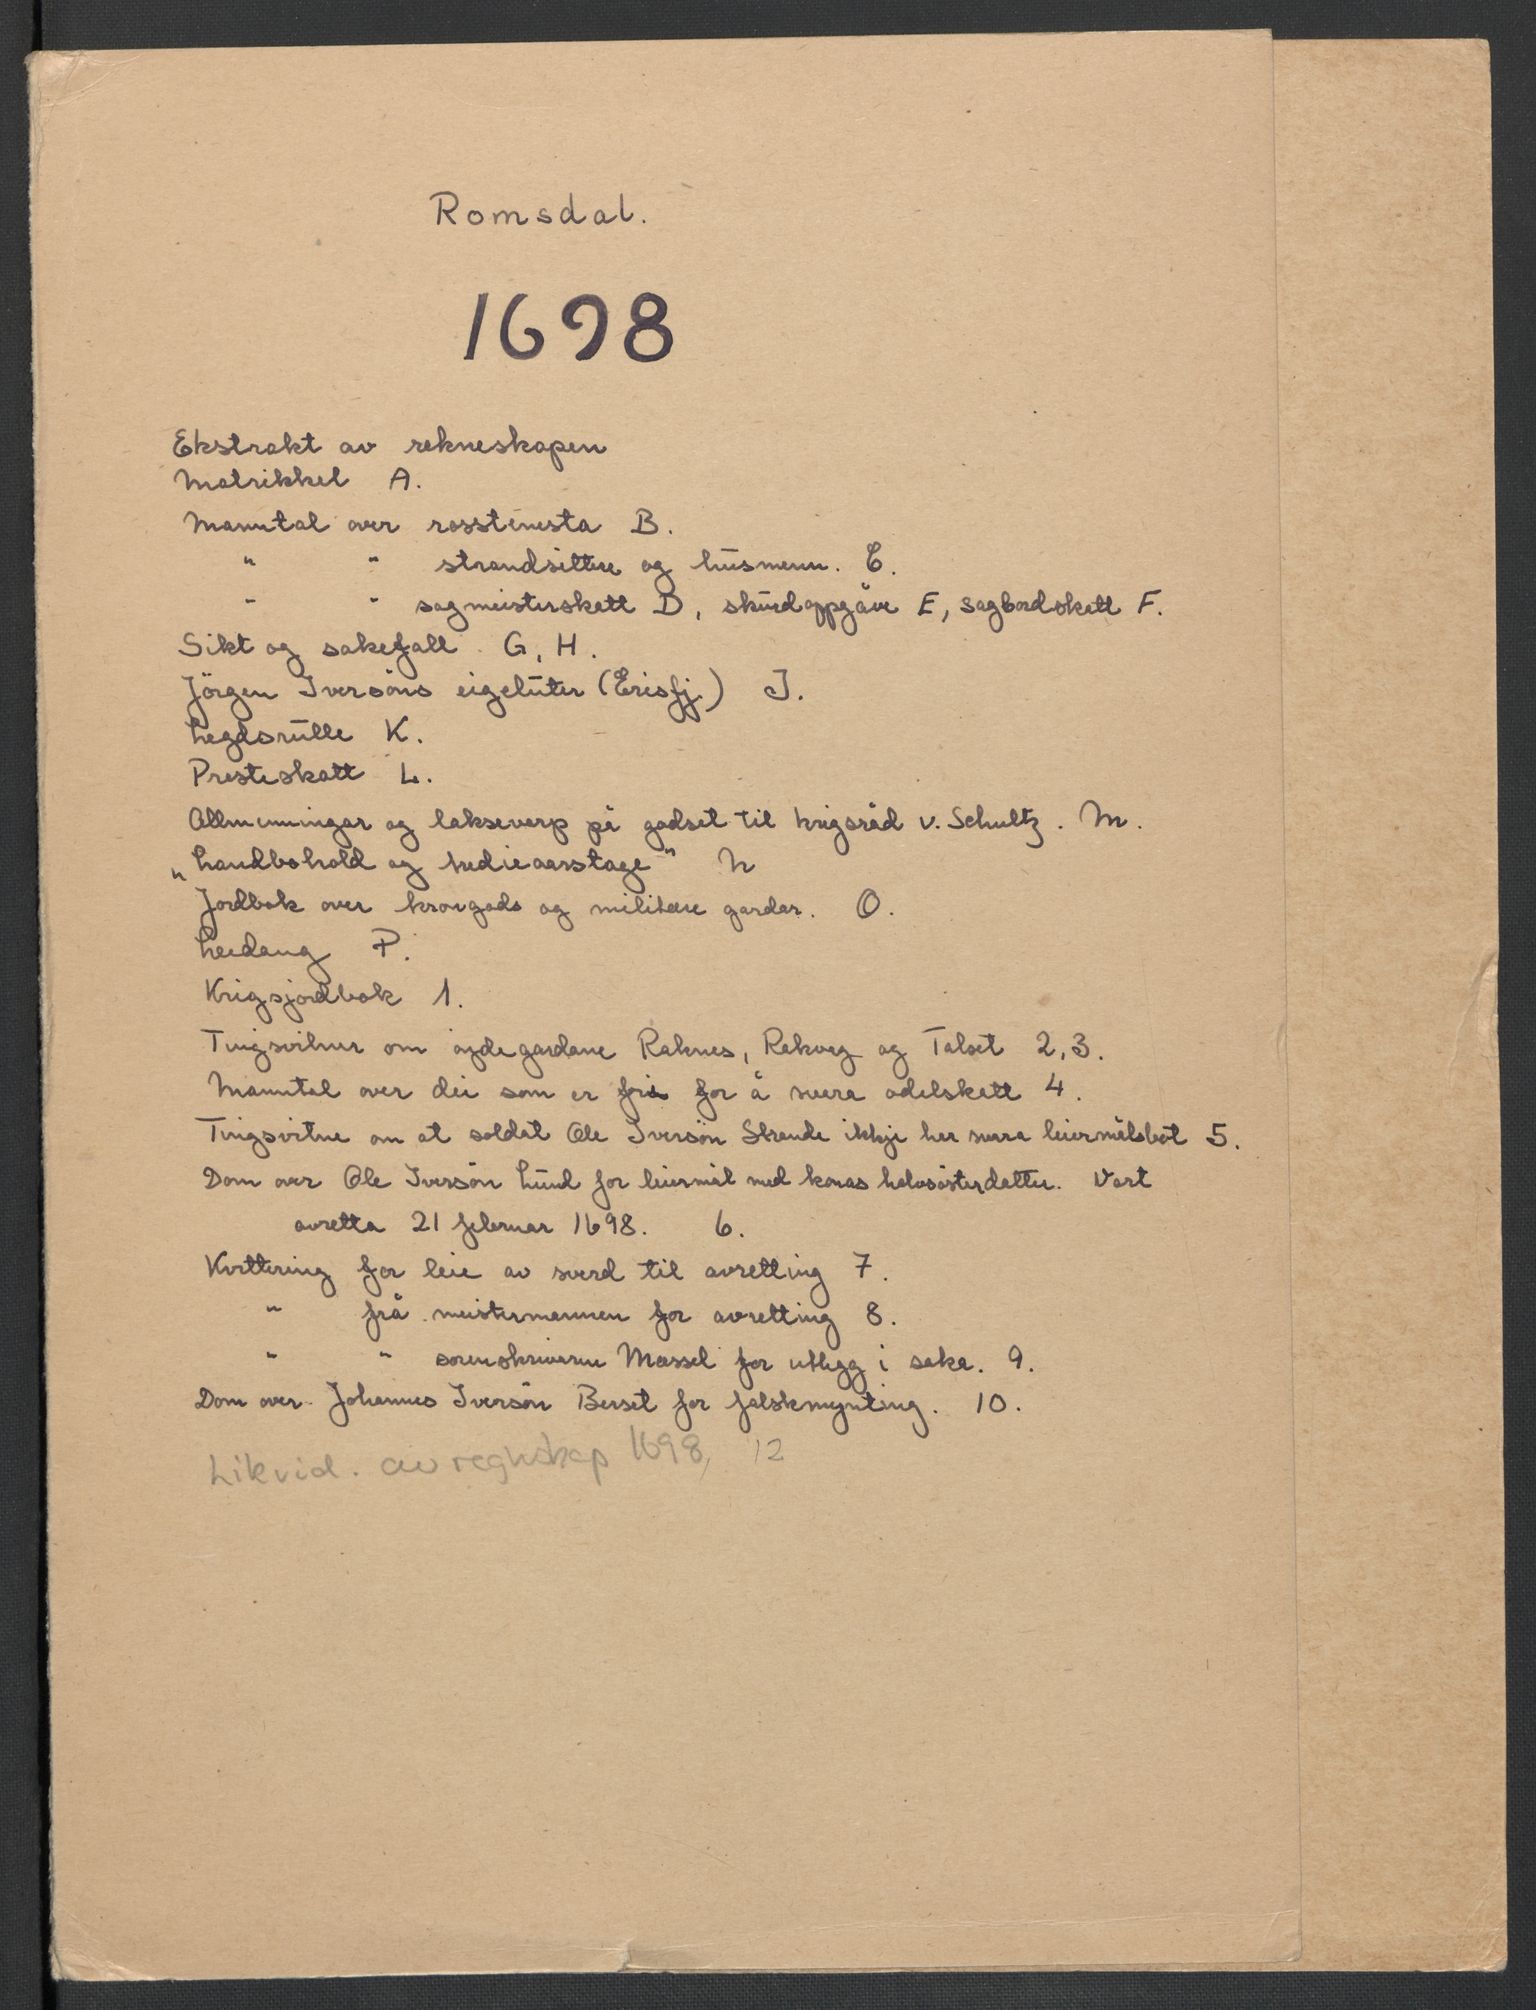 Romsdal.
1698
Ekstrakt av rekneskapen
Matrikkel A.
Manntal over rosstenesta B.
" " strandsittere og husmenn. C.
" " sagmeisterskatt D, skurdoppgåve E, sagbordskatt F.
Sikt og sakefall. G, H.
Jörgen Iversöns eigeluter (Erisfj.) J.
Legdsrulle K.
Presteskatt L.
Allmenningar og laksevarp på godset til krigsråd v. Schultz. M.
„Landbohold og tredieaarstage" N
Jordbok over krongods og militære gardar. O.
Leidang P.
Krigsjordbok 1.
Tingsvitner om øydegardane Raknes, Rakvog og Talset 2, 3.
Manntal over dei som er fri for å svara odelskatt 4.
Tingsvitne om at soldat Ole Iversön Strande ikkje har svara leiermålsbot 5.
Dom over Ole Iversön Lund for leiermål med konas halvsösterdatter. Vart
avretta 21 februar 1698. 6.
Kvittering for leie av sverd til avretting 7.
" frå meistermannen for avretting 8.
" " sorenskrivaren Mæssel for utlegg i saka. 9.
Dom over Johannes Iversön Berset for falskmynting. 10.
Likvid. av regnskap 1698, 12